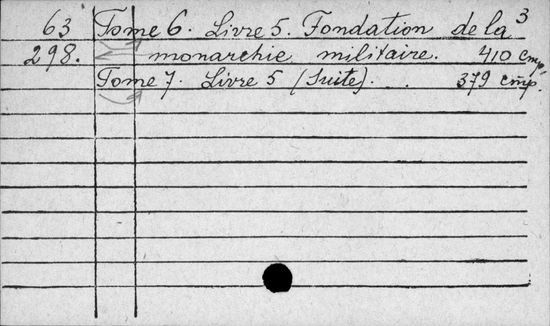 63 Tome 6. Livre 5. Fondation de la 3
298. monarchie militaire. 410 стр.
Tome 7. Livre 5 (Suite). . 379 стр.